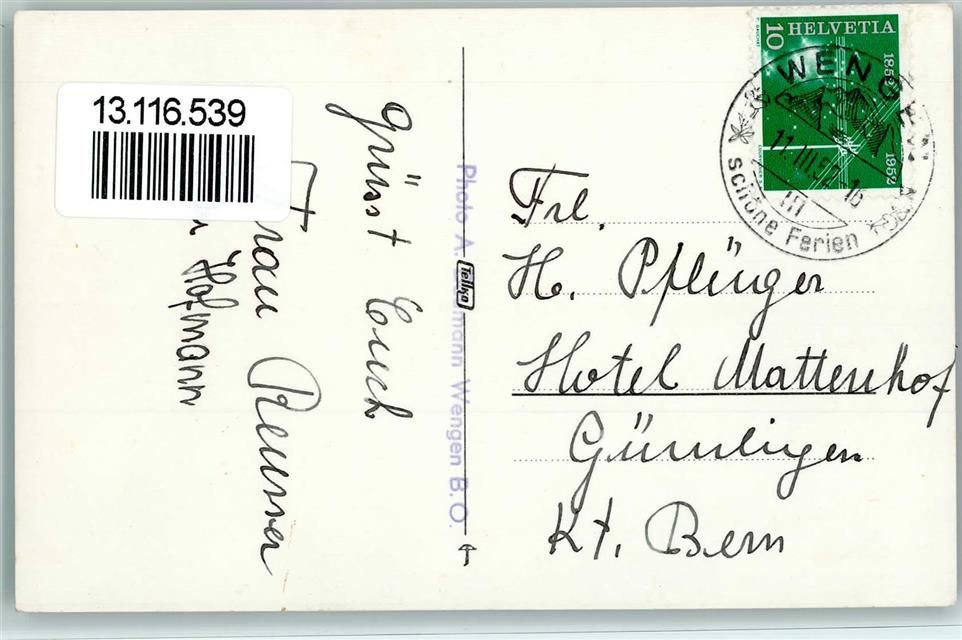 13.116.539
Grüsst Euch
Frau Reusser
Hofmann
Photo A.
mann Wengen B.O.
Tellko
HELVETIA
10
1852
1952
WENGEN
11.III.52-16
schöne Ferien
Frl.
H. Pflüger
Hotel Mattenhof
Gümligen
Kt. Bern